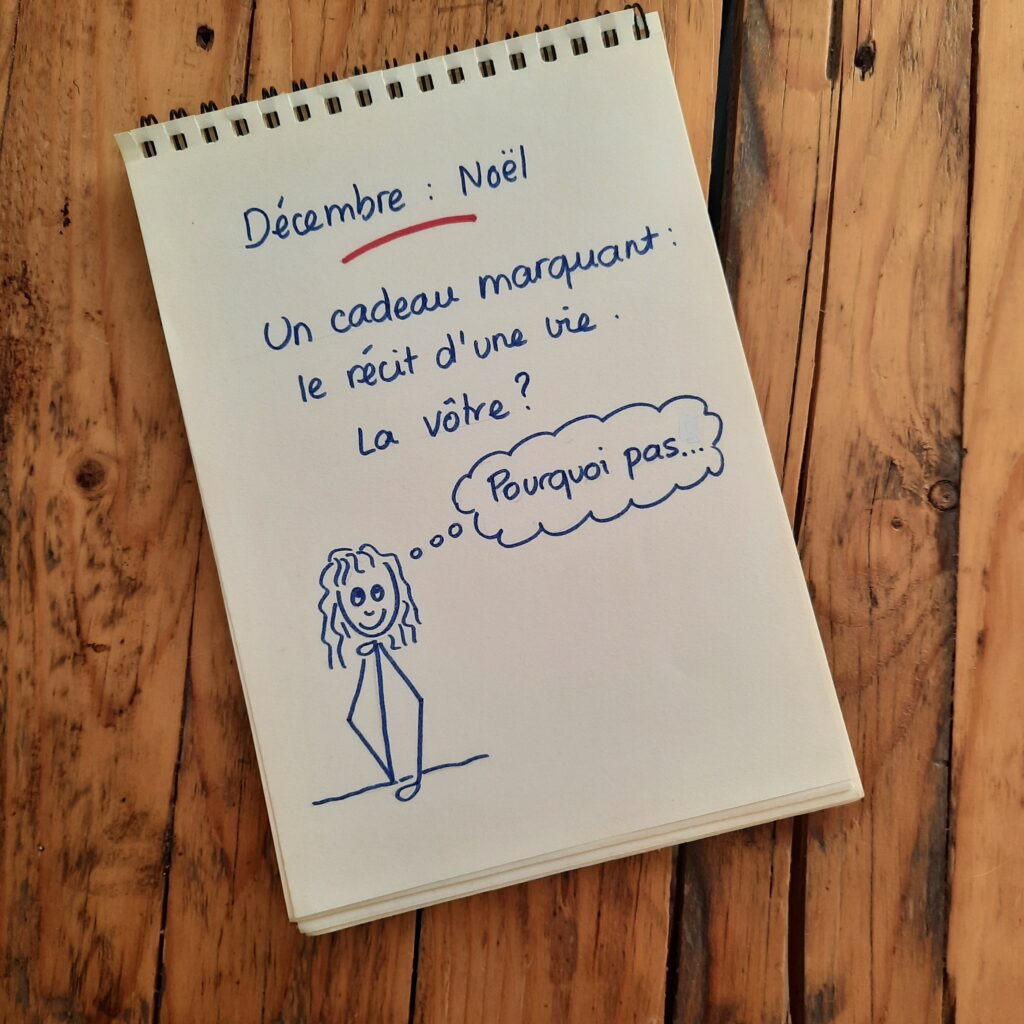 Décembre : Noël
Un cadeau marquant :
le récit d'une vie.
La vôtre ?
Pourquoi pas...